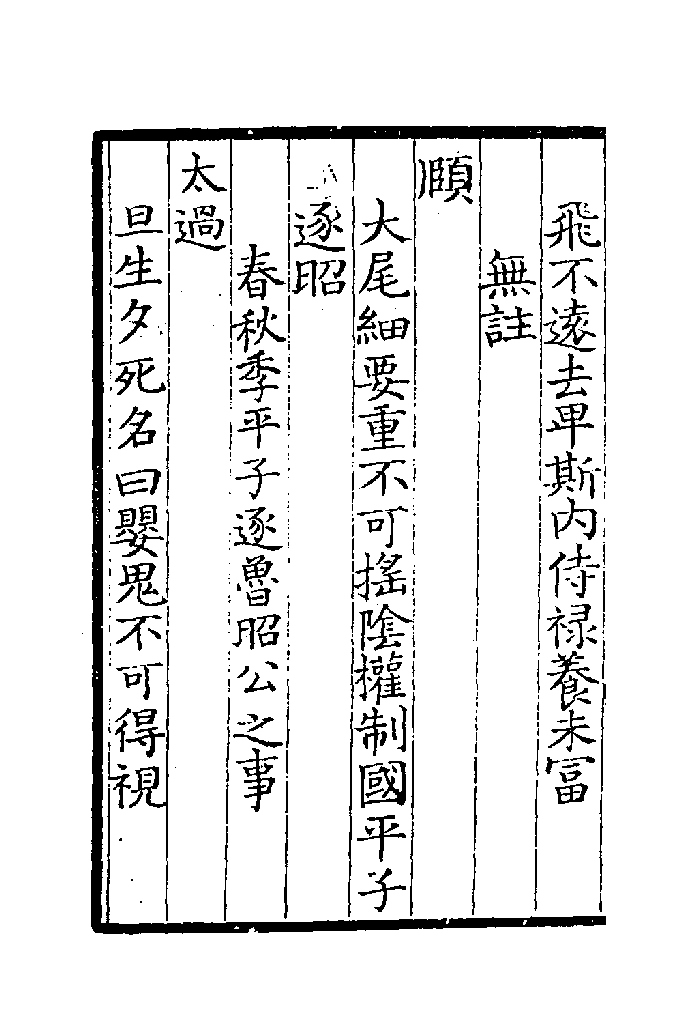 飛不遠去卑斯内侍禄養未富
無註
頤
大尾細要重不可搖陰權制國平子
逐昭
春秋季平子逐魯昭公之事
太過
旦生夕死名曰嬰鬼不可得視